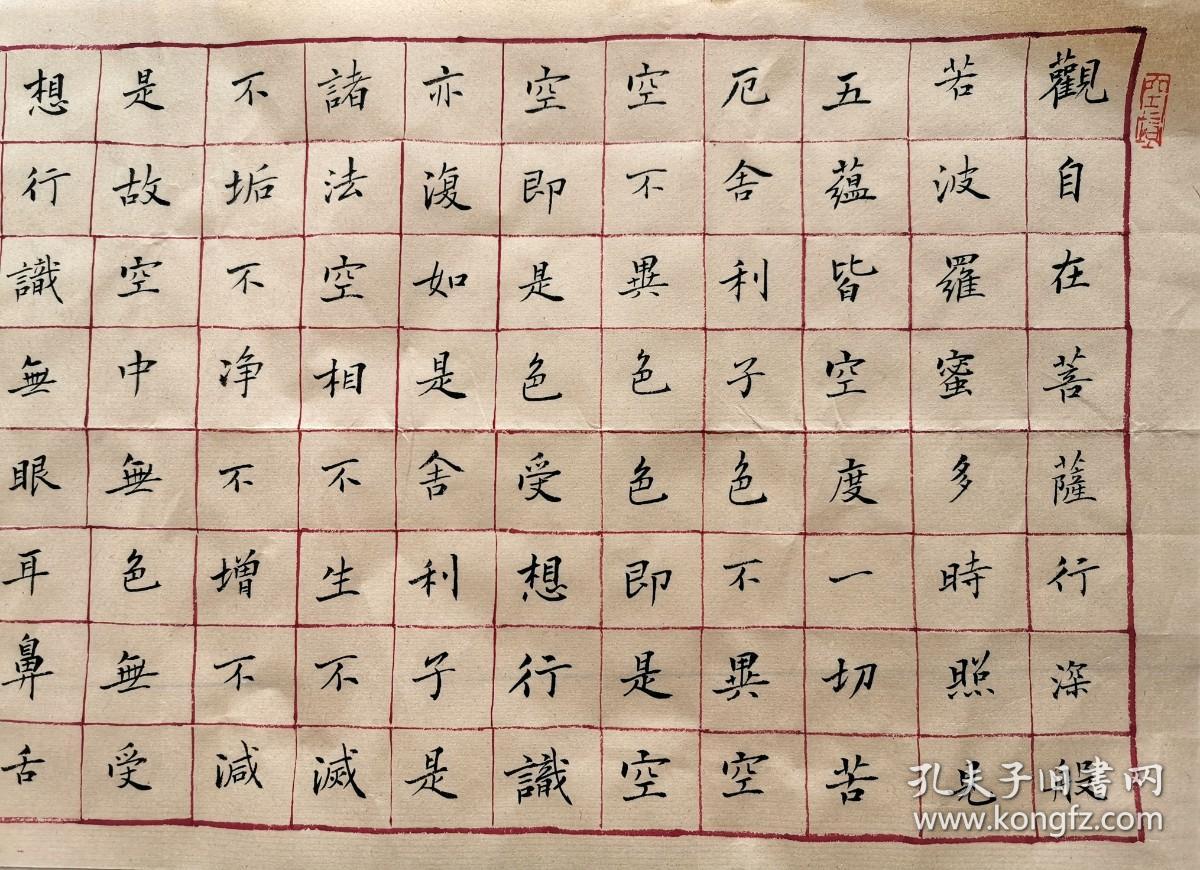 觀自在菩薩行深般
若波羅蜜多時照見
五蘊皆空度一切苦
厄舍利子色不異空
空不異色色即是空
空即是色受想行識
亦復如是舍利子是
諸法空相不生不滅
不垢不净不增不減
是故空中無色無受
想行識無眼耳鼻舌
孔夫子旧書网
www.kongfz.com